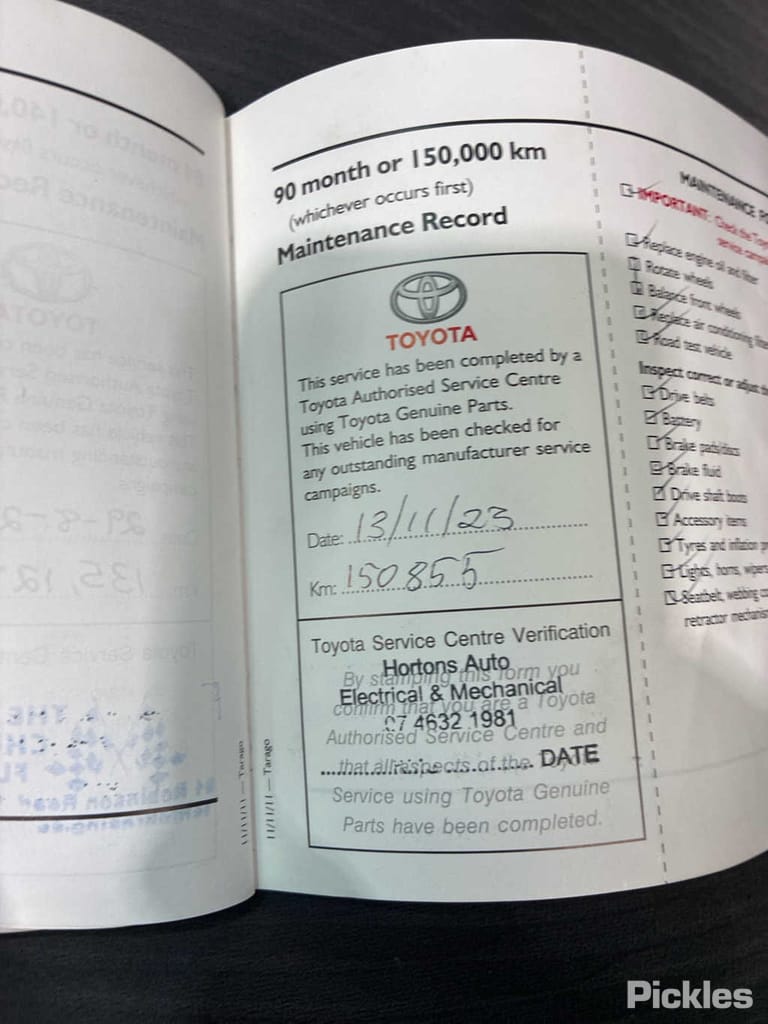 90 month or 150,000 km
(whichever occurs first)
Maintenance Record
TOYOTA
This service has been completed by a
Toyota Authorised Service Centre
using Toyota Genuine Parts.
This vehicle has been checked for
any outstanding manufacturer service
campaigns.
Date: 13/11/23
Km: 150855
Toyota Service Centre Verification
By stamping this form you
Hortons Auto
confirm that you are a Toyota
Electrical & Mechanical
07 4632 1981
Authorised Service Centre and
that all respects of the Toyota
DATE
Service using Toyota Genuine
Parts have been completed.
11/11/11 — Tarago
11/11/11 — Tarago
MAINTENANCE
IMPORTANT: Check the
service
Replace engine oil and filter
Rotate wheels
Balance front wheels
Replace air conditioning
Road test vehicle
Inspect correct or adjust
Drive belts
Battery
Brake pads/discs
Brake fluid
Drive shaft boots
Accessory items
Tyres and inflation
Lights, horns, wipers
Seatbelt, webbing
retractor
Pickles